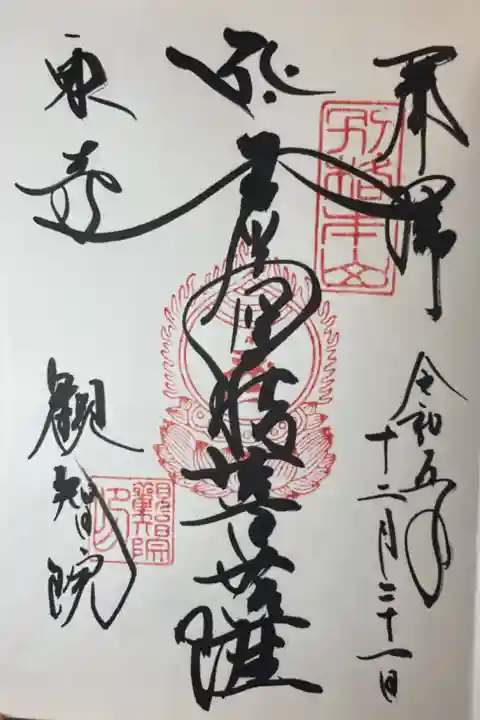 奉拝
令和五年
十二月二十一日
別格本山
虚空蔵菩薩
東寺
観智院
観智院印